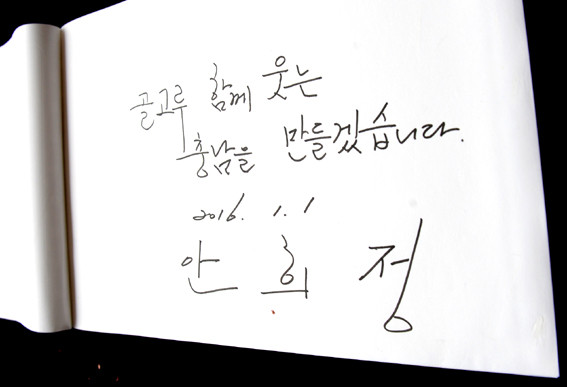 골고루 함께 웃는
충남을 만들겠습니다.
2016. 1. 1
안 희 정